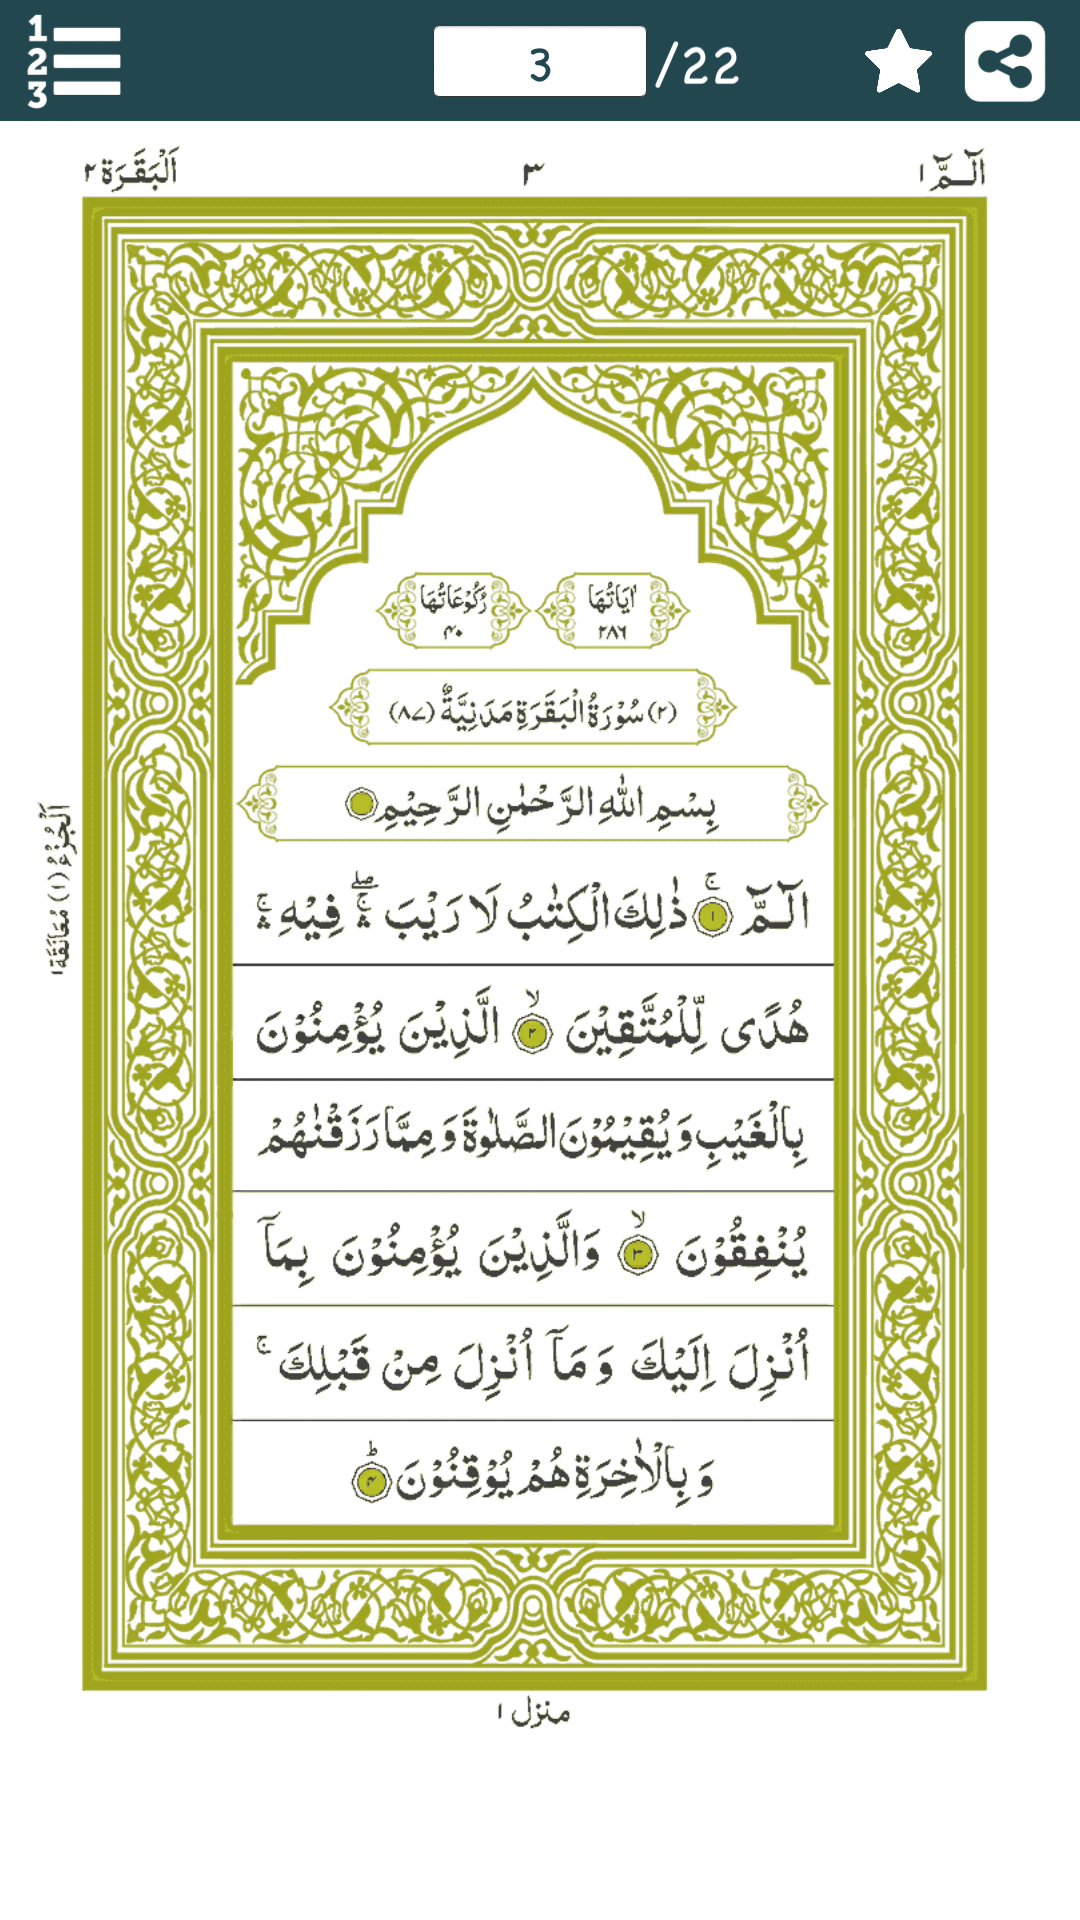 1
2
3
3 /22
الٓـمّٓ ١
٣
اَلْبَقَرَة ٢
اٰيَاتُهَا ٢٨٦
رُكُوْعَاتُهَا ٤٠
(٢) سُوْرَةُ الْبَقَرَةِ مَدَنِيَّةٌ (٨٧)
بِسْمِ اللّٰهِ الرَّحْمٰنِ الرَّحِيْمِ
الٓـمّٓ ۚ ١ ذٰلِكَ الْكِتٰبُ لَا رَيْبَ ۛۖۚ فِيْهِ ۛۚ
هُدًى لِّلْمُتَّقِيْنَ ۙ ٢ الَّذِيْنَ يُؤْمِنُوْنَ
بِالْغَيْبِ وَ يُقِيْمُوْنَ الصَّلٰوةَ وَ مِمَّا رَزَقْنٰهُمْ
يُنْفِقُوْنَ ۙ ٣ وَالَّذِيْنَ يُؤْمِنُوْنَ بِمَآ
اُنْزِلَ اِلَيْكَ وَ مَآ اُنْزِلَ مِنْ قَبْلِكَ ۚ
وَ بِالْاٰخِرَةِ هُمْ يُوْقِنُوْنَ ؕ ٤
اَلْجُزْءُ (١) مُعَانَقَة ١
منزل ١